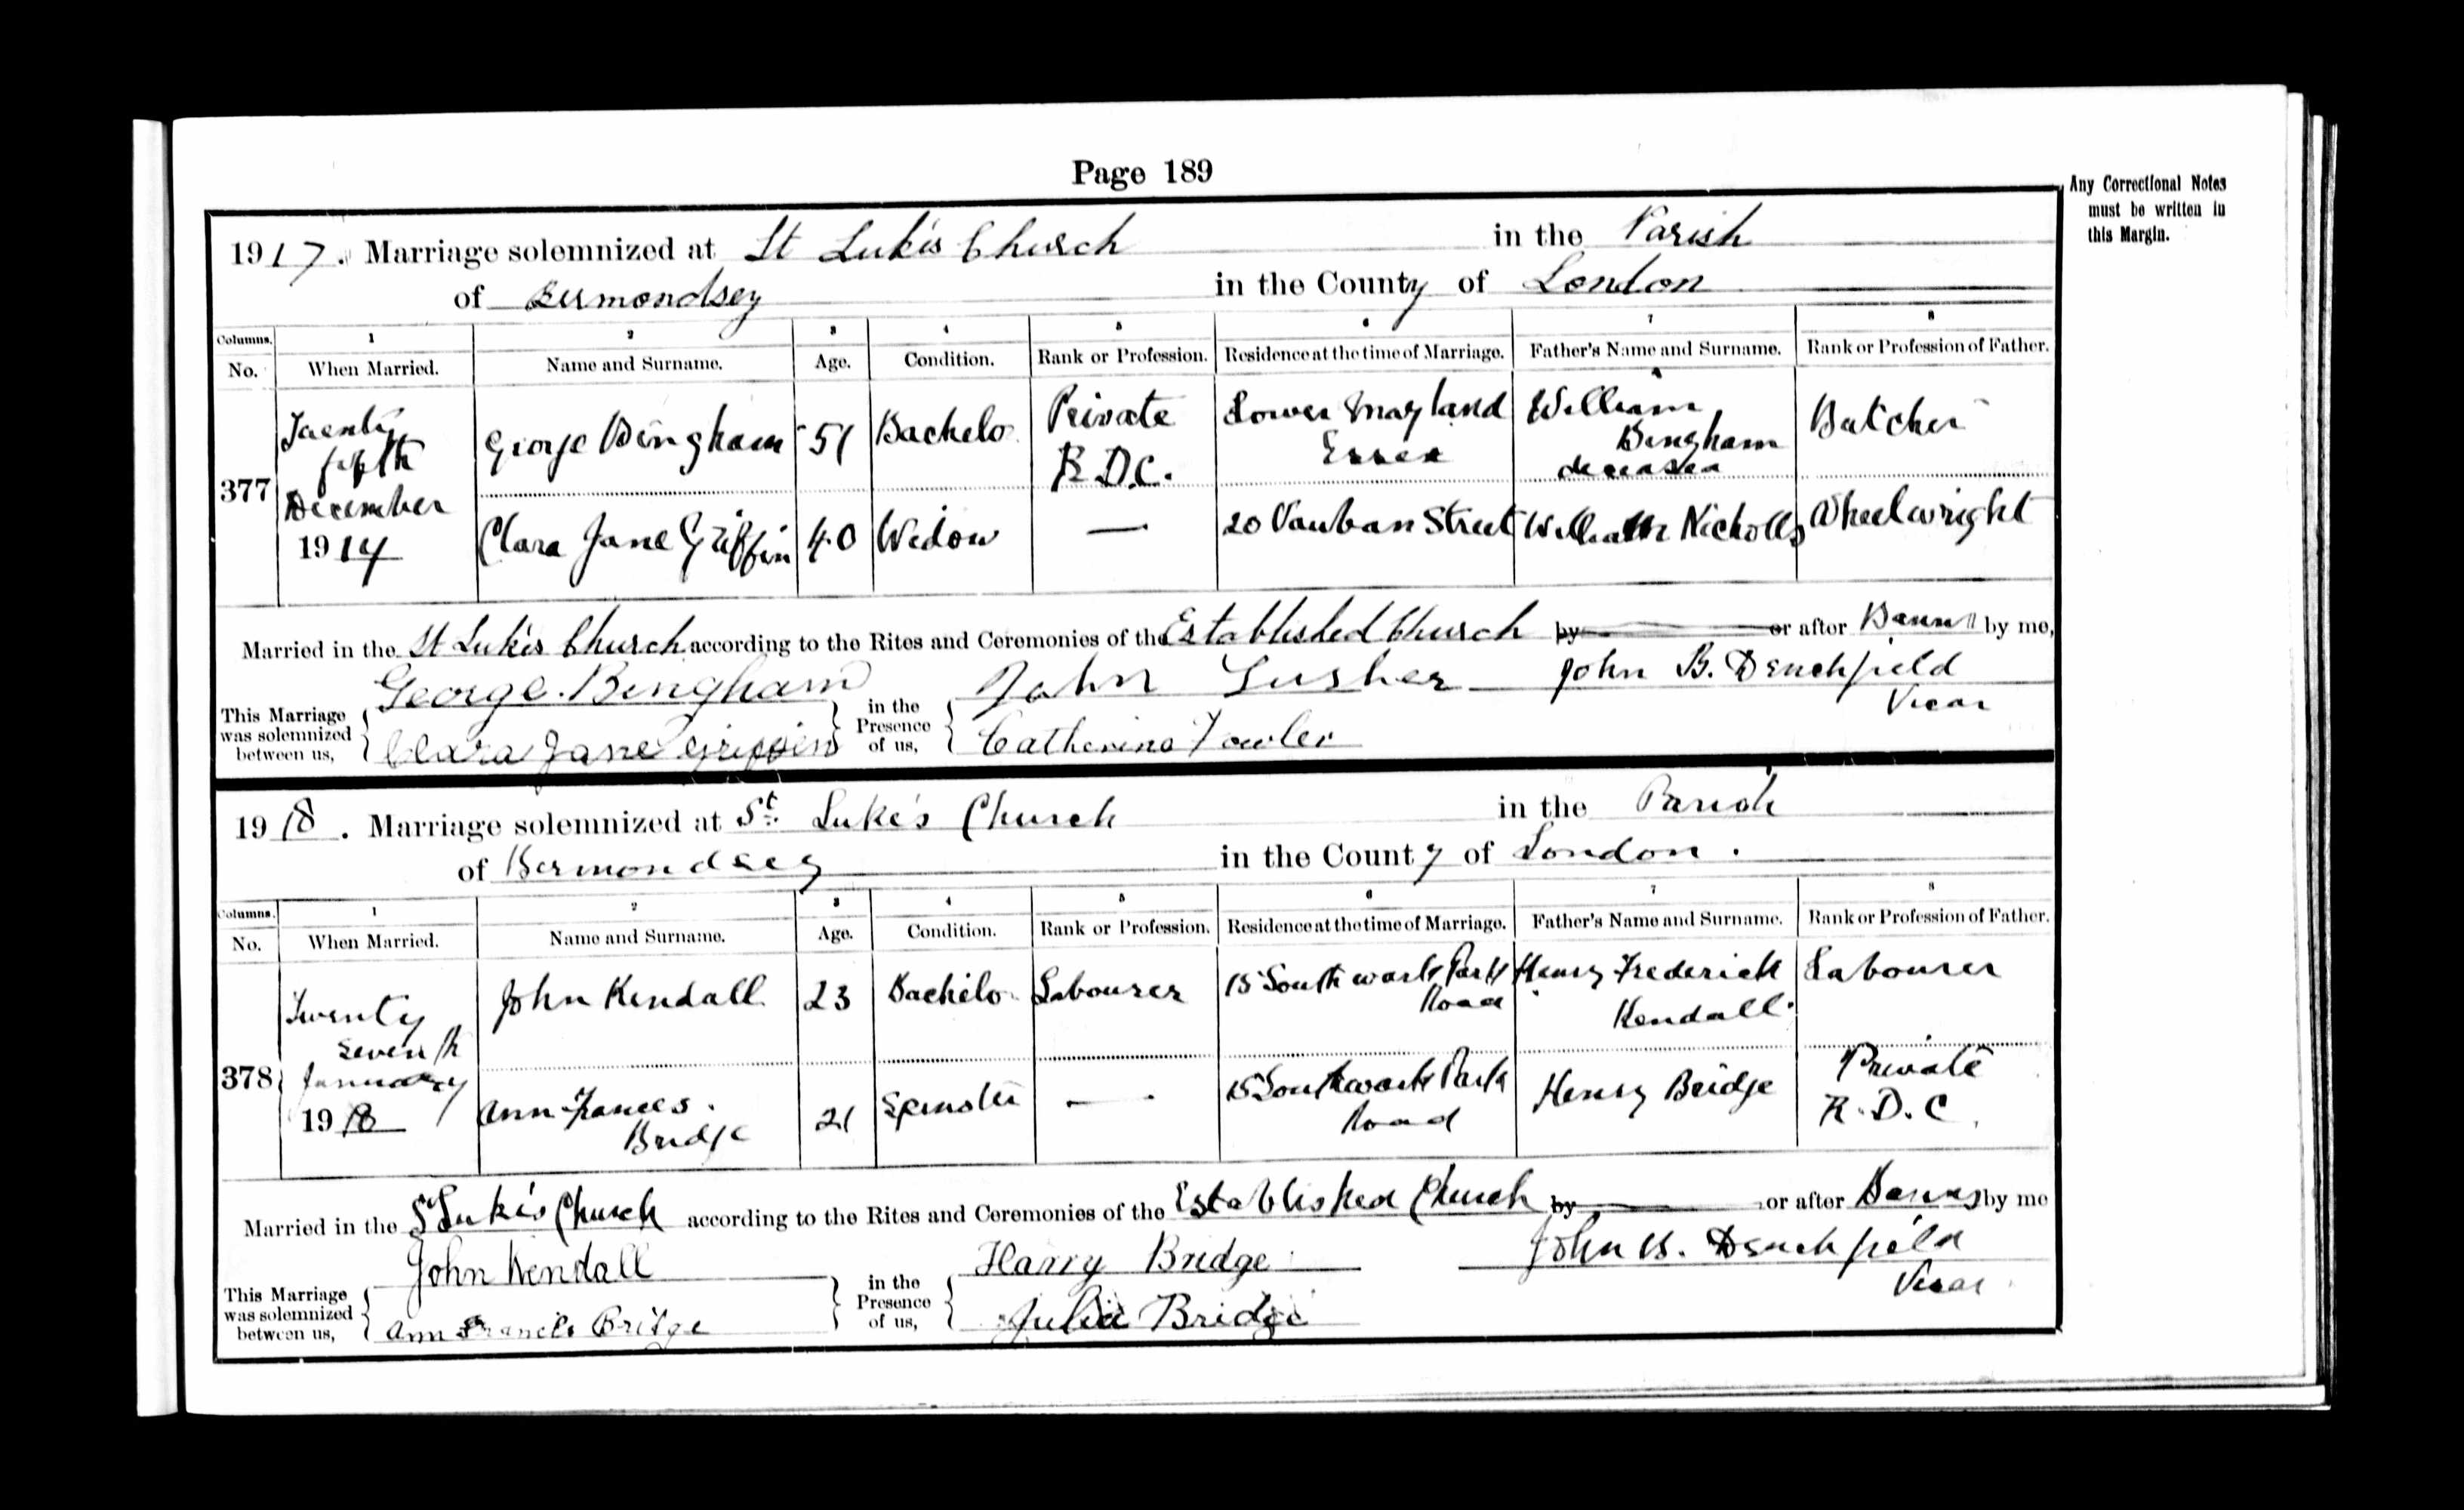 Page 189
Any Correctional Notes
must be written in
this Margin.
1917. Marriage solemnized at St Luke's Church in the Parish
of Bermondsey in the County of London
Columns. 1 2 3 4 5 6 7 8
No. When Married. Name and Surname. Age. Condition. Rank or Profession. Residence at the time of Marriage. Father's Name and Surname. Rank or Profession of Father.
377 Twenty fifth December 1917 George Bingham 51 Bachelor Private R.D.C. Lower Mayland Essex William Bingham deceased Butcher
Clara Jane Griffin 40 Widow — 20 Vauban Street William Nicholls Wheelwright
Married in the St Luke's Church according to the Rites and Ceremonies of the Established Church by or after Banns by me,
George Bingham John Lusher John B. Denchfield
Vicar
This Marriage was solemnized between us, in the Presence of us,
Clara Jane Griffin Catherine Fowler
1918. Marriage solemnized at St. Luke's Church in the Parish
of Bermondsey in the County of London.
Columns. 1 2 3 4 5 6 7 8
No. When Married. Name and Surname. Age. Condition. Rank or Profession. Residence at the time of Marriage. Father's Name and Surname. Rank or Profession of Father.
378 Twenty Seventh January 1918 John Kendall 23 Bachelor Labourer 15 Southwark Park Road Henry Frederick Kendall Labourer
Ann Frances Bridge 21 Spinster — 15 Southwark Park Road Henry Bridge Private R.D.C.
Married in the St Luke's Church according to the Rites and Ceremonies of the Established Church by or after Banns by me
John Kendall Harry Bridge John B. Denchfield
Vicar
This Marriage was solemnized between us, in the Presence of us,
Ann Francis Bridge Julia Bridge